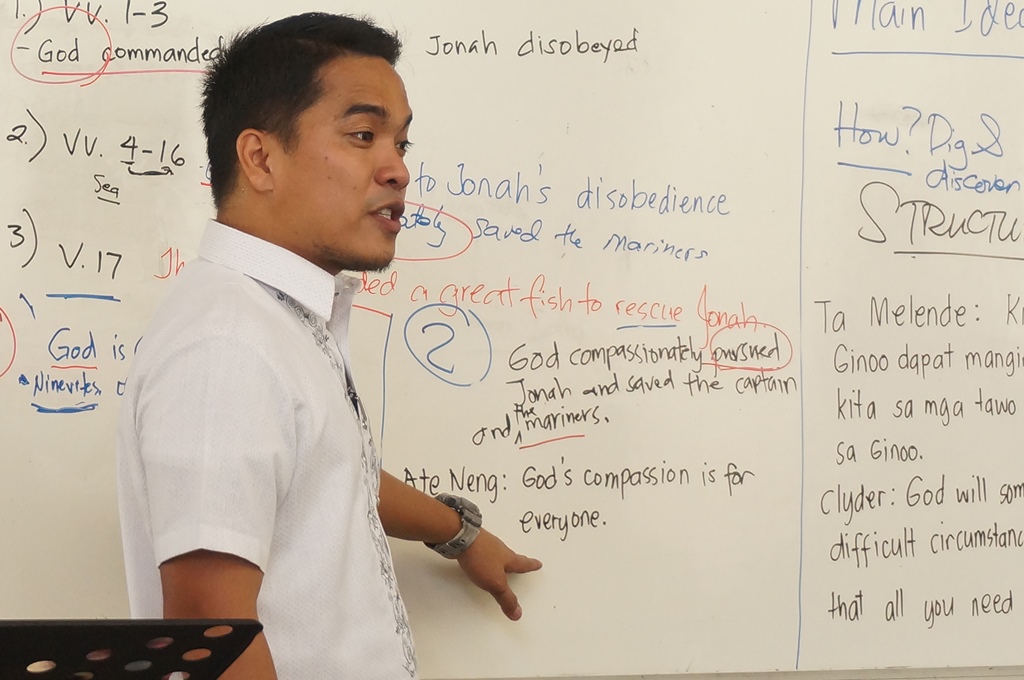 1.) VV. 1-3
- God commanded Jonah disobeyed
2.) VV. 4-16
Sea
to Jonah's disobedience
saved the mariners
3) V. 17
a great fish to rescue Jonah.
God is
• Ninevites
2
God compassionately pursued
Jonah and saved the captain
and the mariners.
Ate Neng: God's compassion is for
everyone.
Main
How? Dig &
discover
Ta Melende:
Ginoo dapat
kita sa mga tawo
sa Ginoo.
Clyder: God will
difficult
that all you need